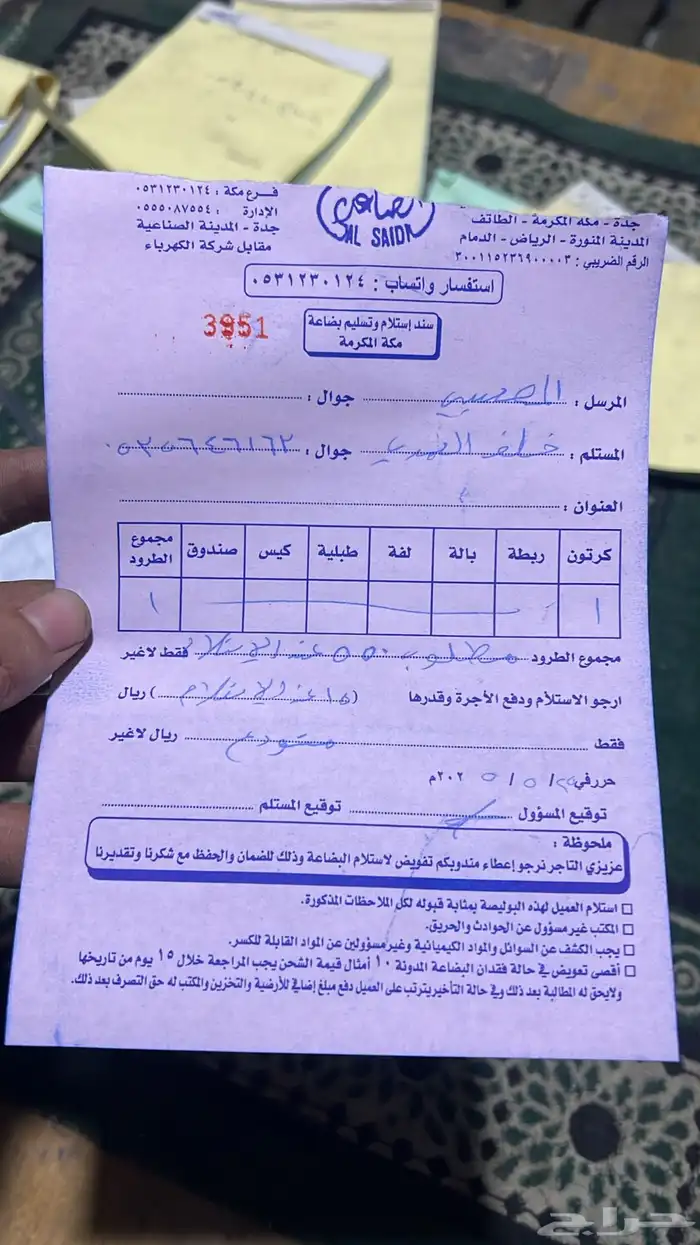 جدة - مكة المكرمة - الطائف
المدينة المنورة - الرياض - الدمام
الرقم الضريبي : ٣٠٠١١٥٢٣٦٩٠٠٠٠٣
AL SAIDI
فرع مكة : ٠٥٣١٢٣٠١٢٤
الإدارة : ٠٥٥٥٠٨٧٥٥٤
جدة - المدينة الصناعية
مقابل شركة الكهرباء
استفسار واتساب : ٠٥٣١٢٣٠١٢٤
سند إستلام وتسليم بضاعة
مكة المكرمة
3951
المرسل : جوال :
المستلم : خلف جوال : ٠٥٣٥٦٤٦١٦٢
العنوان :
كرتون ربطة بالة لفة طبلية كيس صندوق مجموع الطرود
١ ١
مجموع الطرود مطلوب ٥٥٠ عند الإستلام فقط لاغير
ارجو الاستلام ودفع الأجرة وقدرها (١٥ عند الإستلام) ريال
فقط مستودع ريال لاغير
حرر في ٢٩ / ٥ / ٢٠٢٥م
توقيع المسؤول توقيع المستلم
ملحوظة :
عزيزي التاجر نرجو إعطاء مندوبكم تفويض لاستلام البضاعة وذلك للضمان والحفظ مع شكرنا وتقديرنا
استلام العميل لهذه البوليصة بمثابة قبوله لكل الملاحظات المذكورة.
المكتب غير مسؤول عن الحوادث والحريق.
يجب الكشف عن السوائل والمواد الكيميائية وغير مسؤولين عن المواد القابلة للكسر.
أقصى تعويض في حالة فقدان البضاعة المدونة ١٠ أمثال قيمة الشحن يجب المراجعة خلال ١٥ يوم من تاريخها
ولايحق له المطالبة بعد ذلك وفي حالة التأخير يترتب على العميل دفع مبلغ إضافي للأرضية والتخزين والمكتب له حق التصرف بعد ذلك.
حراج